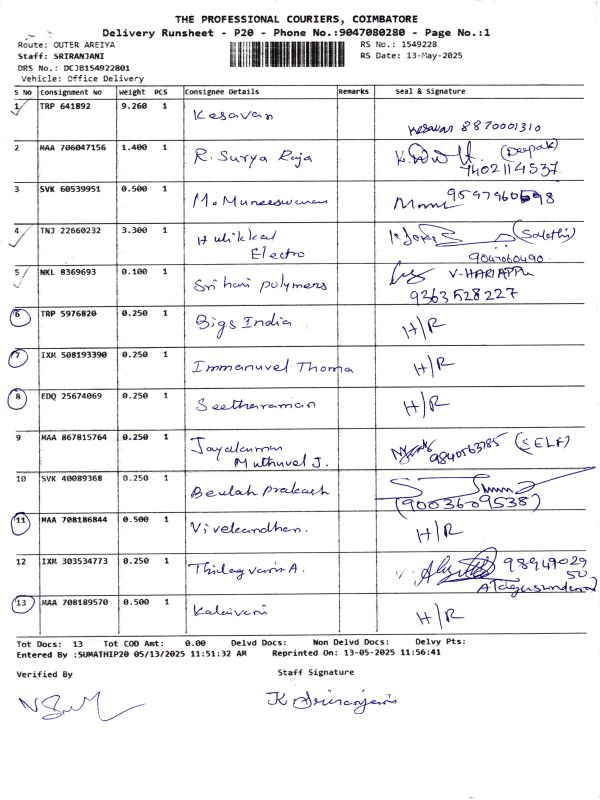 THE PROFESSIONAL COURIERS, COIMBATORE
Delivery Runsheet - P20 - Phone No.:9047080280 - Page No.:1
Route: OUTER AREIYA RS No.: 1549228
Staff: SRIRANJANI RS Date: 13-May-2025
DRS No.: DCJB154922801
Vehicle: Office Delivery
S No Consignment No Weight PCS Consignee Details Remarks Seal & Signature
1 TRP 641892 9.260 1 Kesavan Kesavan 8870001310
2 MAA 706047156 1.400 1 R. Surya Raja (Deepak) 7402114537
3 SVK 60539951 0.500 1 M. Muneeswaran
4 TNJ 22660232 3.300 1 Hulikkal Electro 9047060490
5 NKL 8369693 0.100 1 Sri hari polymers V-HARI APPU 9363528227
6 TRP 5976820 0.250 1 Bigs India H/R
7 IXM 508193390 0.250 1 Immanuvel Thoma H/R
8 EDQ 25674069 0.250 1 Seetharaman H/R
9 MAA 867815764 0.250 1 Jayakumar Muthuvel J. (SELF)
10 SVK 40089368 0.250 1 Beulah Prakash (9003609538)
11 MAA 708186844 0.500 1 Vivekandhan. H/R
12 IXM 303534773 0.250 1 Thilagvani A. 9894902950
13 MAA 708189570 0.500 1 Kalaivani H/R
Tot Docs: 13 Tot COD Amt: 0.00 Delvd Docs: Non Delvd Docs: Delvy Pts:
Entered By :SUMATHIP20 05/13/2025 11:51:32 AM Reprinted On: 13-05-2025 11:56:41
Verified By Staff Signature
K Sriranjani